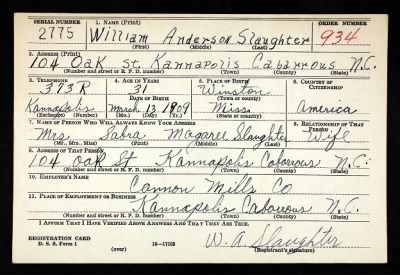 SERIAL NUMBER 1. NAME (Print) ORDER NUMBER
2775 William Anderson Slaughter 934
(First) (Middle) (Last)
2. ADDRESS (Print)
104 Oak St. Kannapolis Cabarrous N.C.
(Number and street or R. F. D. number) (Town) (County) (State)
3. TELEPHONE 4. AGE IN YEARS 5. PLACE OF BIRTH 6. COUNTRY OF CITIZENSHIP
373R 31 Winston
DATE OF BIRTH (Town or county)
Kannapolis March 13 1909 Miss. America
(Exchange) (Number) (Mo.) (Day) (Yr.) (State or country)
7. NAME OF PERSON WHO WILL ALWAYS KNOW YOUR ADDRESS 8. RELATIONSHIP OF THAT PERSON
Mrs. Sabra Magaree Slaughter Wife
(Mr., Mrs., Miss) (First) (Middle) (Last)
9. ADDRESS OF THAT PERSON
104 Oak St Kannapolis Cabarrous N.C.
(Number and street or R. F. D. number) (Town) (County) (State)
10. EMPLOYER'S NAME
Cannon Mills Co
11. PLACE OF EMPLOYMENT OR BUSINESS
Kannapolis Cabarrous N.C.
(Number and street or R. F. D. number) (Town) (County) (State)
I AFFIRM THAT I HAVE VERIFIED ABOVE ANSWERS AND THAT THEY ARE TRUE.
REGISTRATION CARD
D. S. S. Form 1 (over) 16—17105 W. A. Slaughter
(Registrant's signature)